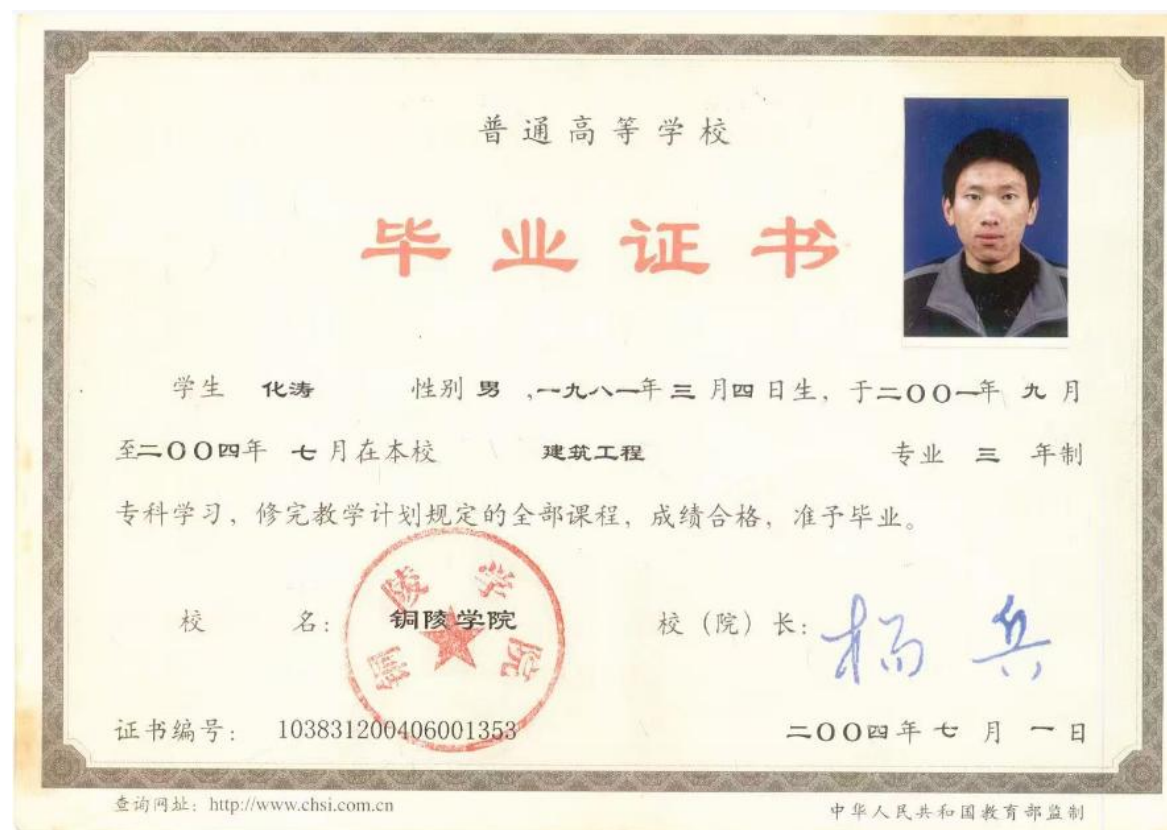 普通高等学校
毕业证书
学生 化涛 性别 男 ,一九八一年 三 月四 日生，于二〇〇一年 九 月
至二〇〇四年 七 月在本校 建筑工程 专业 三 年制
专科学习，修完教学计划规定的全部课程，成绩合格，准予毕业。
校 名: 铜陵学院 校（院）长: 杨兵
铜陵学院
证书编号: 103831200406001353 二〇〇四年 七 月 一 日
查询网址: http://www.chsi.com.cn 中华人民共和国教育部监制